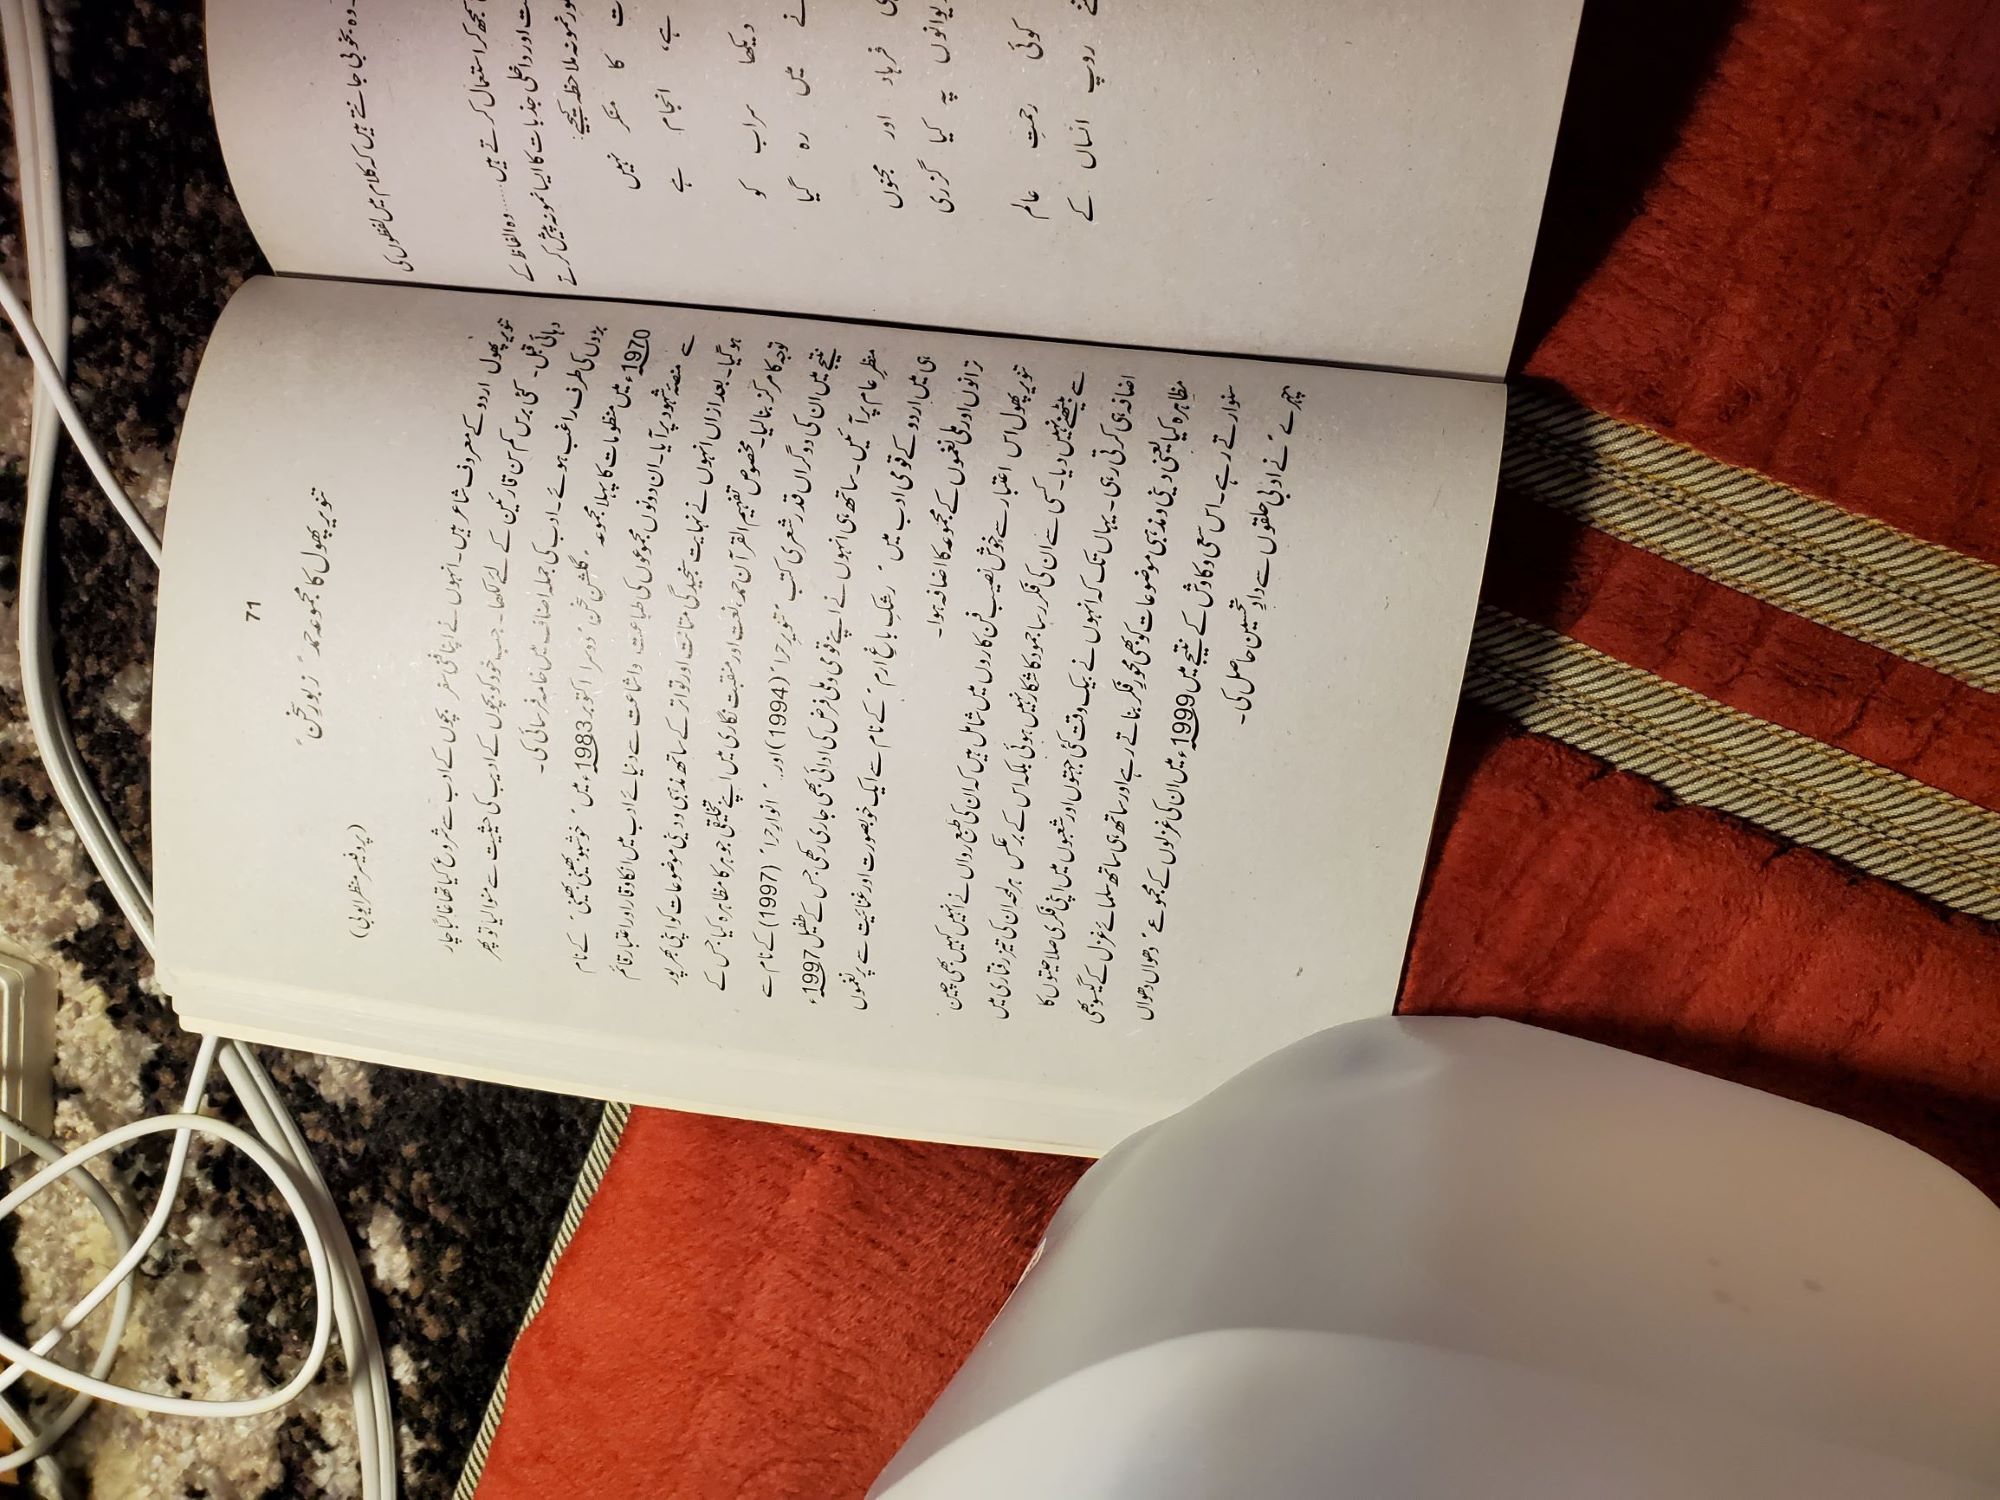 71
تنویر پھول کا مجموعہ حمد ”زبورِ سخن“
(پروفیسر منظر ایوبی)
تنویر پھول اردو کے معروف شاعر ہیں۔ انہوں نے اپنا فنی سفر بچوں کے ادب سے شروع کیا تھا غالباً چار
دہائی قبل۔ کئی برس کم سن قارئین کے لئے لکھا۔ جب خود کو بچوں کے ادیب کی حیثیت سے منوا لیا تو پھر
بڑوں کی طرف راغب ہوئے۔ ادب کی جملہ اصناف میں خامہ فرسائی کی۔
1970ء میں منظومات کا پہلا مجموعہ ”گلشنِ سخن“ دوسرا اکتوبر 1983ء میں ”خوشبو بھینی بھینی“ کے نام
سے منصۂ شہود پر آیا۔ ان دونوں مجموعوں کی طباعت و اشاعت سے دنیائے ادب میں انکا وقار اور اعتبار قائم
ہو گیا۔ بعد ازاں انہوں نے نہایت سنجیدگی متانت اور تواتر کے ساتھ مذہبی و دینی موضوعات کو اپنی بھرپور
توجہ کا مرکز بنا لیا۔ مخصوص تفہیم القرآن حمد، نعت اور منقبت نگاری میں اپنے تخلیقی جوہر کا مظاہرہ کیا جس کے
نتیجے میں ان کی دو گراں قدر شعری کتب ”تنویرِ حرا“ (1994) اور ”انوارِ حرا“ (1997) کے نام سے
منظرِ عام پر آئیں۔ ساتھ ہی انہوں نے اپنے قومی و ملی فرض کی ادائی بھی جاری رکھی جس کے طفیل 1997ء
ہی میں اردو کے قومی ادب میں ”رشکِ باغِ ارم“ کے نام سے ایک خوبصورت اور غنائیت سے پُر نغموں
ترانوں اور ملی نغموں کے مجموعہ کا اضافہ ہوا۔
تنویر پھول اس اعتبار سے خوش نصیب فن کاروں میں شامل ہیں کہ ان کی طبع رواں نے انہیں کہیں بھی چین
سے بیٹھنے نہیں دیا۔ کسی سے ان کی فکر رسا جمود کا شکار نہیں ہوئی بلکہ اس کے برعکس ہر لمحہ ان کی تیز رفتاری میں
اضافہ ہی کرتی رہی۔ یہاں تک کہ انہوں نے بیک وقت کئی جہتوں اور شعبوں میں اپنی فکری صلاحیتوں کا
مظاہرہ کیا یعنی دینی و مذہبی موضوعات کو بھی محورِ فکر بناتے رہے اور ساتھ ہی ساتھ سلمائے غزل کے گیسو بھی
سنوارتے رہے۔ اس سعی و کاوش کے نتیجے میں 1999ء میں ان کی غزلوں کے مجموعے ”دھواں دھواں
چہرے“ نے ادبی حلقوں سے دادِ تحسین حاصل کی۔
وہ بخوبی جانتے ہیں کہ کلام میں لفظوں کی
سمجھ کر استعمال کرتے ہیں ..... وہ الفاظ کے
اور داخلی جذبات کا ایسا نمونہ پیش کرتے
نمونہ ملاحظہ کیجیے:
کا منکر نہیں
ہے، انجام ہے
دیکھا سراب کو
نے میں رہ گیا
فرہاد اور مجنوں
دیوانوں پہ کیا گزری
کوئی رحمتِ عالم
روپ انساں کے